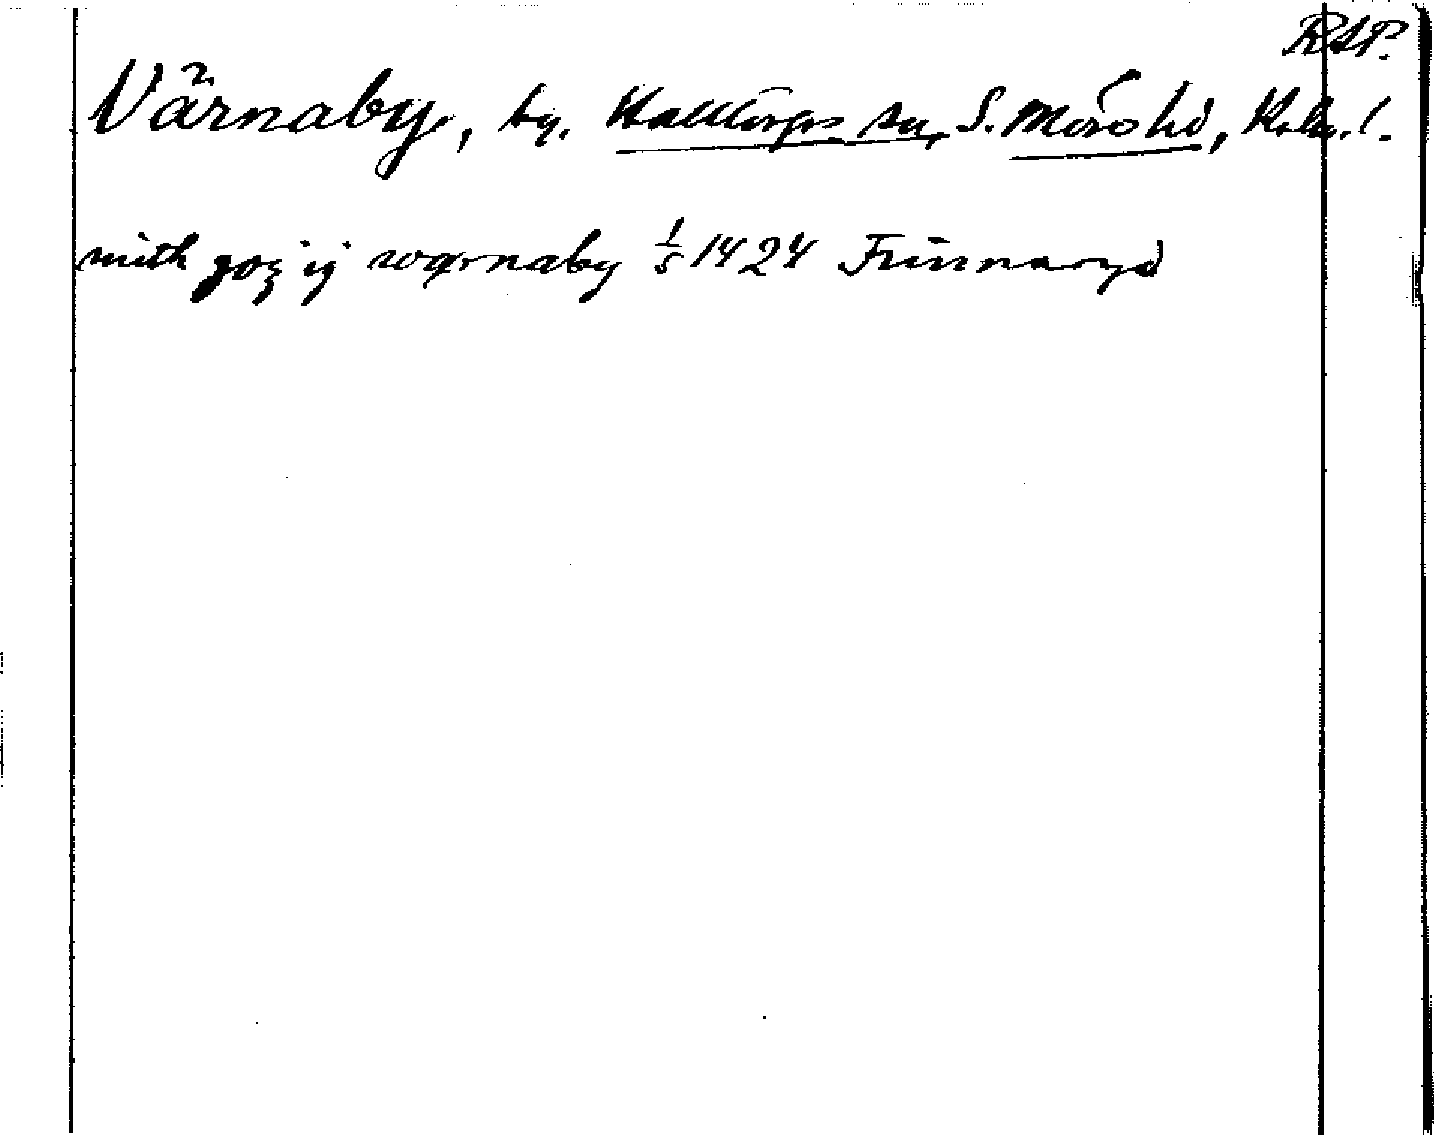 RAP.
Värnaby, by, Halltorps sn, S. Möre hd, Kalm. l.
mith goz ij wærnaby 1/5 1424 Finnaryd